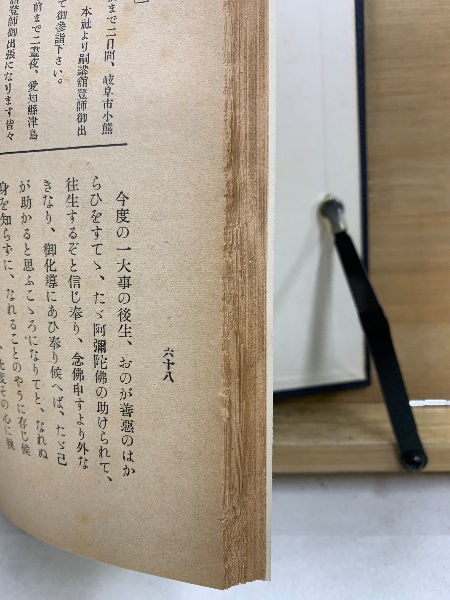 まで二日間、岐阜市小熊
本社より嗣講舘登師御出
て御參詣下さい。
前まで二晝夜、愛知縣津島
舘登師御出張になります皆々
今度の一大事の後生、おのが善惡のはか
らひをすてゝ、たゞ阿彌陀佛の助けられて、
往生するぞと信じ奉り、念佛申すより外な
きなり、御化導にあひ奉り候へば、たゞ己
が助かると思ふこゝろになりてと、なれぬ
身を知らずに、なれることのやうに存じ候
度その心に執
六十八